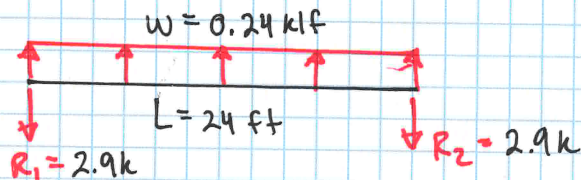 w = 0.24 klf
L = 24 ft
R₁ = 2.9k
R₂ = 2.9k